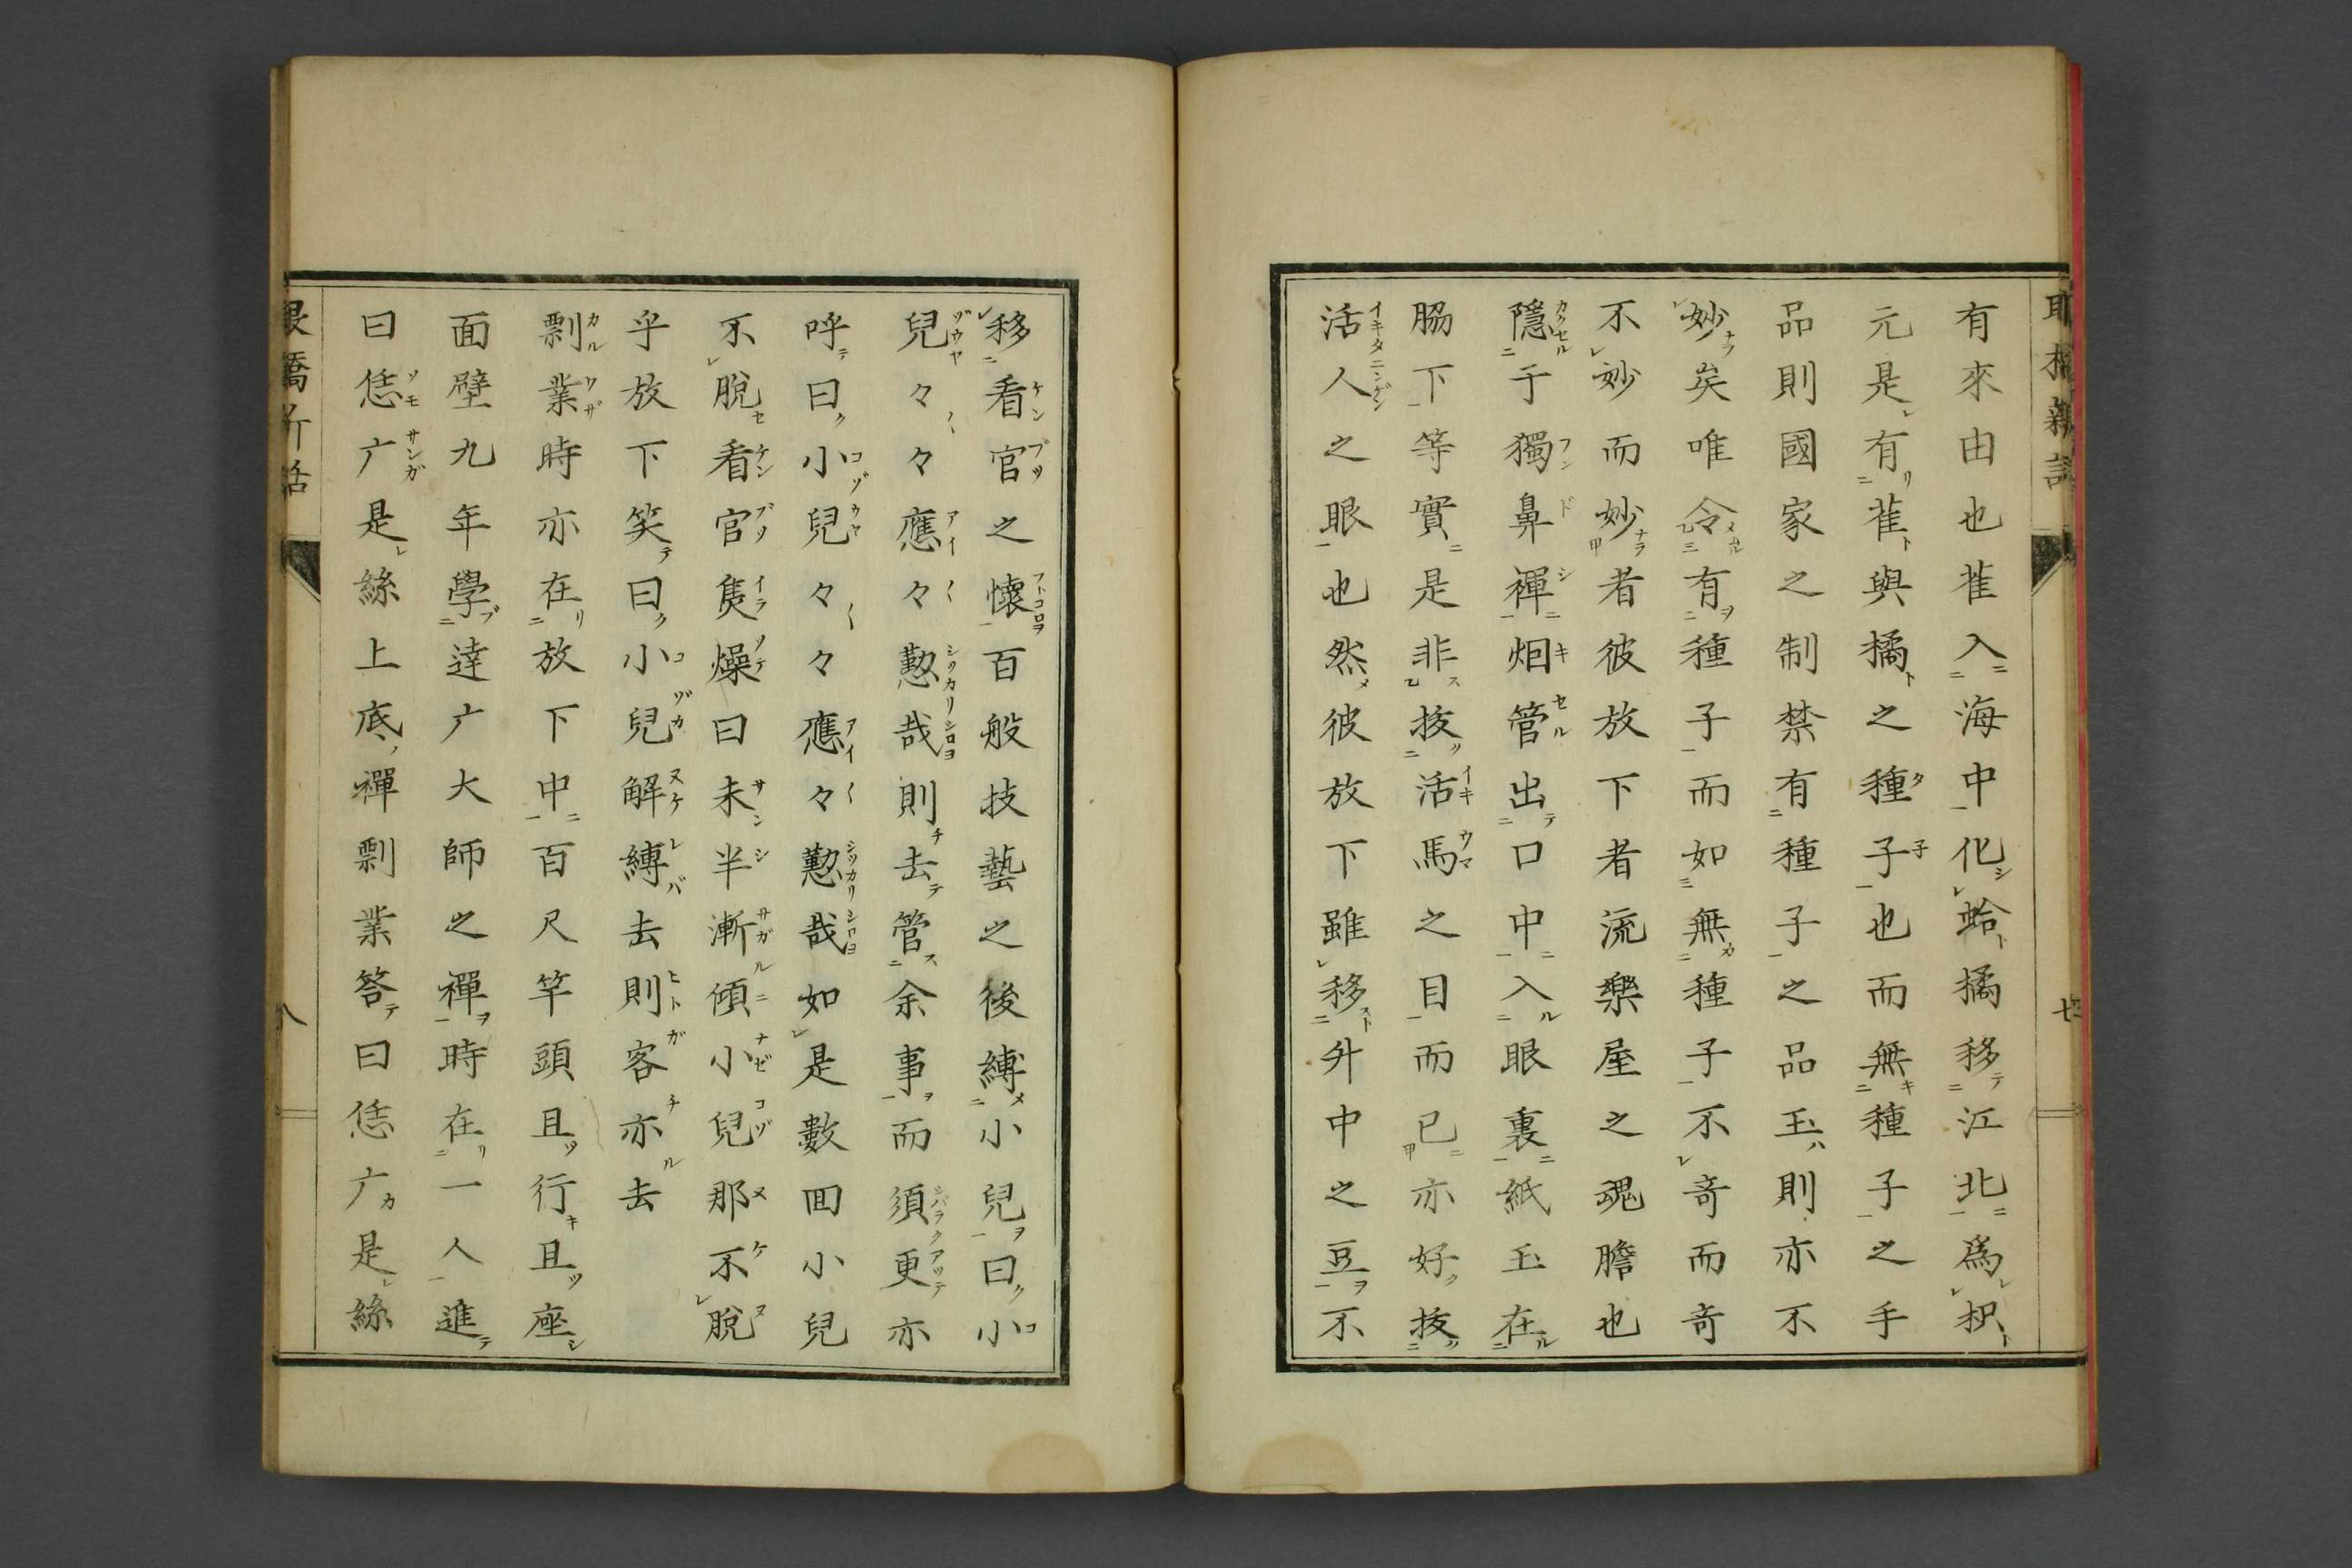 有來由也雀入海中化蛤橘移江北爲枳
元是有雀與橘之種子也而無種子之手
品則國家之制禁有種子之品玉則亦不
妙矣唯令有種子而如無種子不奇而奇
不妙而妙者彼放下者流樂屋之魂膽也
隱于獨鼻褌烟管出口中入眼裏紙玉在
脇下等實是非拔活馬之目而已亦好拔
活人之眼也然彼放下雖移升中之豆不
移看官之懷百般技藝之後縛小兒曰小
兒々々應々懃哉則去管余事而須更亦
呼曰小兒々々應々懃哉如是數回小兒
不脫看官焦燥曰未半漸傾小兒那不脫
乎放下笑曰小兒解縛去則客亦去
剽業時亦在放下中百尺竿頭且行且座
面壁九年學達广大師之禪時在一人進
曰恁广是絲上底禪剽業答曰恁广是絲
八